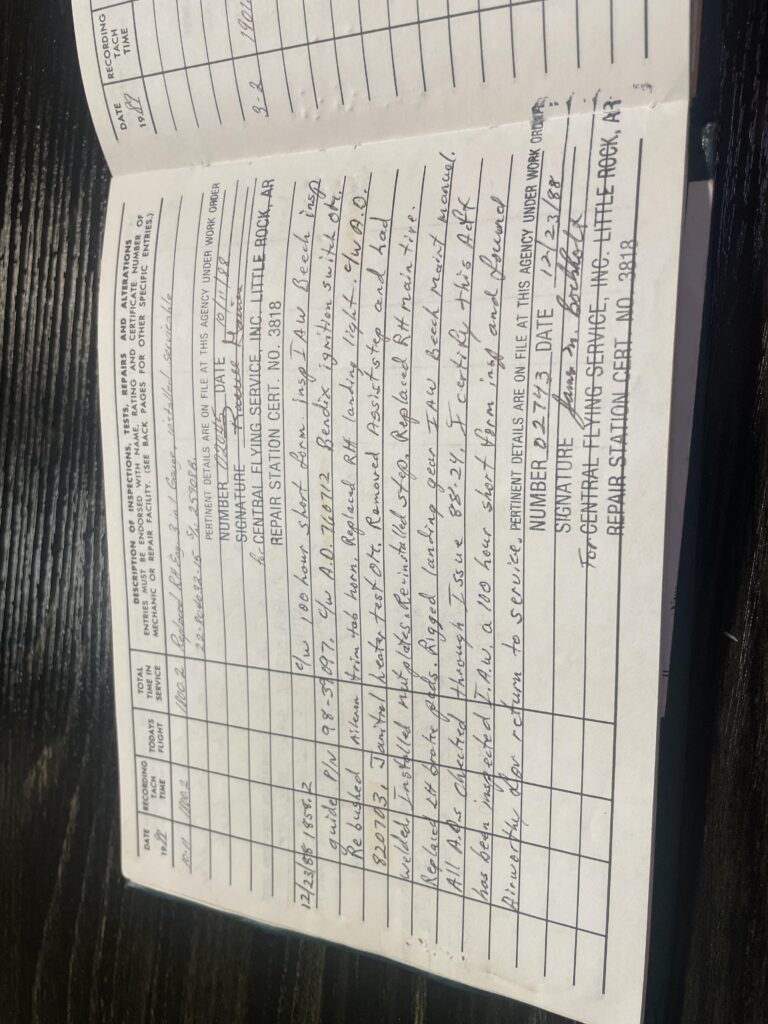 DATE
19 88
RECORDING
TACH
TIME
TODAYS
FLIGHT
TOTAL
TIME IN
SERVICE
DESCRIPTION OF INSPECTIONS, TESTS, REPAIRS AND ALTERATIONS
ENTRIES MUST BE ENDORSED WITH NAME, RATING AND CERTIFICATE NUMBER OF
MECHANIC OR REPAIR FACILITY. (SEE BACK PAGES FOR OTHER SPECIFIC ENTRIES.)
10-11 Replaced RH Eng 3 in 1 Gauge, installed serviceable
PERTINENT DETAILS ARE ON FILE AT THIS AGENCY UNDER WORK ORDER
NUMBER DATE 10/11/88
SIGNATURE
CENTRAL FLYING SERVICE, INC. LITTLE ROCK, AR
REPAIR STATION CERT. NO. 3818
12/23/88 1858.2 c/w 100 hour short form insp IAW Beech insp
guide P/N 98-33097. c/w A.D. 760712 Bendix ignition switch Otc.
Rebushed Aileron trim tab horn. Replaced RH landing light. c/w A.D.
820703, Janitrol heater test Otc. Removed Assist step and had
welded. Installed nutplates. Reinstalled step. Replaced RH main tire.
Replaced LH brake pads. Rigged landing gear IAW Beech Maint manual.
All A.D.s checked through Issue 88-24. I certify this Acft
has been inspected I.A.W. a 100 hour short form insp and found
Airworthy for return to service.
PERTINENT DETAILS ARE ON FILE AT THIS AGENCY UNDER WORK ORDER
NUMBER 02743 DATE 12/23/88
SIGNATURE James
For CENTRAL FLYING SERVICE, INC. LITTLE ROCK, AR
REPAIR STATION CERT. NO. 3818
DATE
19 89
RECORDING
TACH
TIME
3-2